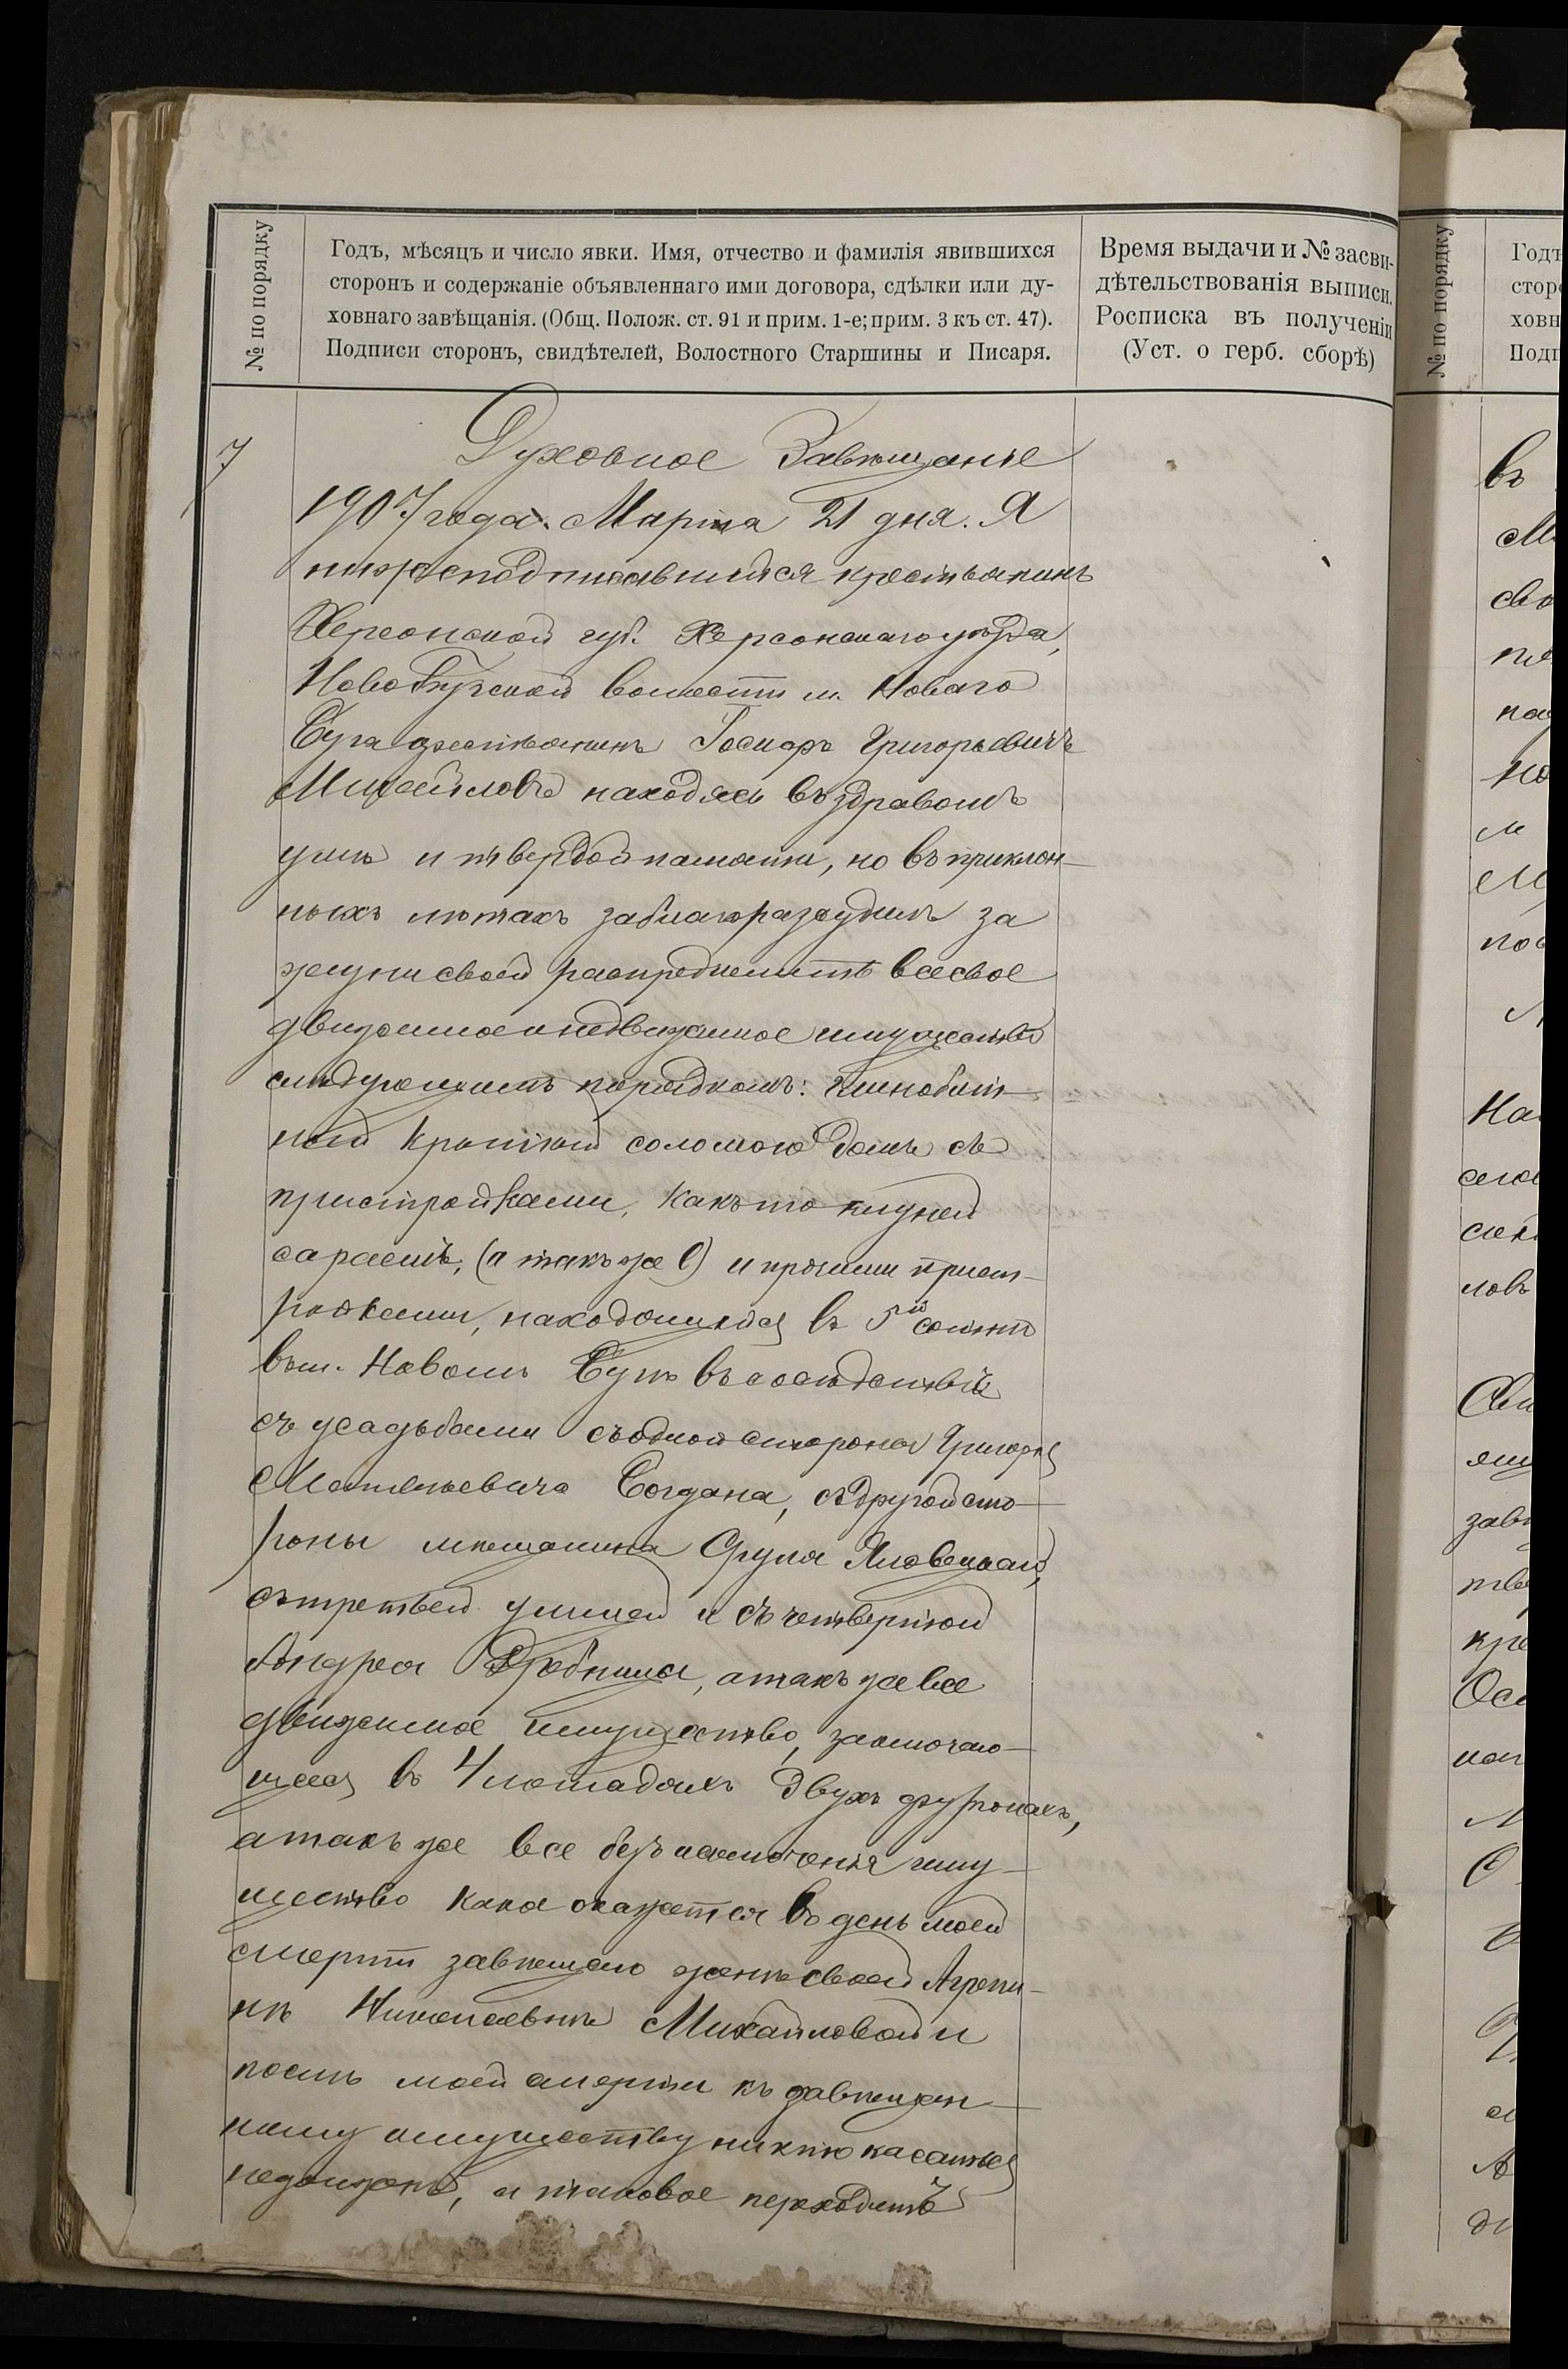 № по порядку
Годъ, мѣсяцъ и число явки. Имя, отчество и фамилія явившихся
сторонъ и содержаніе объявленнаго ими договора, сдѣлки или ду-
ховнаго завѣщанія. (Общ. Полож. ст. 91 и прим. 1-е; прим. 3 къ ст. 47).
Подписи сторонъ, свидѣтелей, Волостного Старшины и Писаря.
Время выдачи и № засви-
дѣтельствованія выписи.
Росписка въ полученіи
(Уст. о герб. сборѣ)
7
Духовное Завѣщаніе
1907 года. Марта 21 дня. Я
нижеподписавшийся крестьянинъ
Херсонской губ. Херсонскаго уѣзда,
Новобугской волости м. Новаго
Буга крестьянинъ Григорьевичъ
Михайловъ находясь въ здравомъ
умѣ и твердой памяти, но въ приклон-
ныхъ лѣтахъ заблагоразсудилъ за
жизни своей распредѣлить все свое
движимое и недвижимое имущество
слѣдующимъ порядкомъ: глинобит-
ный крытый соломою домъ съ
пристройками, какъ то клуней
сараемъ, (а такъ же О) и прочими прист-
ройками, находящийся въ 5й сотнѣ
въ м. Новомъ Бугѣ въ сосѣдствѣ
съ усадьбами съ одной стороны Григорія
Матвѣевича Богдана, съ другой сто-
роны мѣщанина Яловецкаго,
съ третьей улицей и съ четвертой
Андрея а такъ же все
движимое имущество, заключаю-
щееся въ 4 лошадяхъ двухъ фургонахъ,
а такъ же все безъ исключенія иму-
щество какое окажется въ день моей
смерти завѣщаю женѣ своей Агрепи-
нѣ Николаевнѣ Михайловой и
послѣ моей смерти къ завѣщан-
ному имуществу никто касаться
недолженъ, и таковое переходитъ
№ по порядку
Годъ
сторо
ховн
Подп
въ